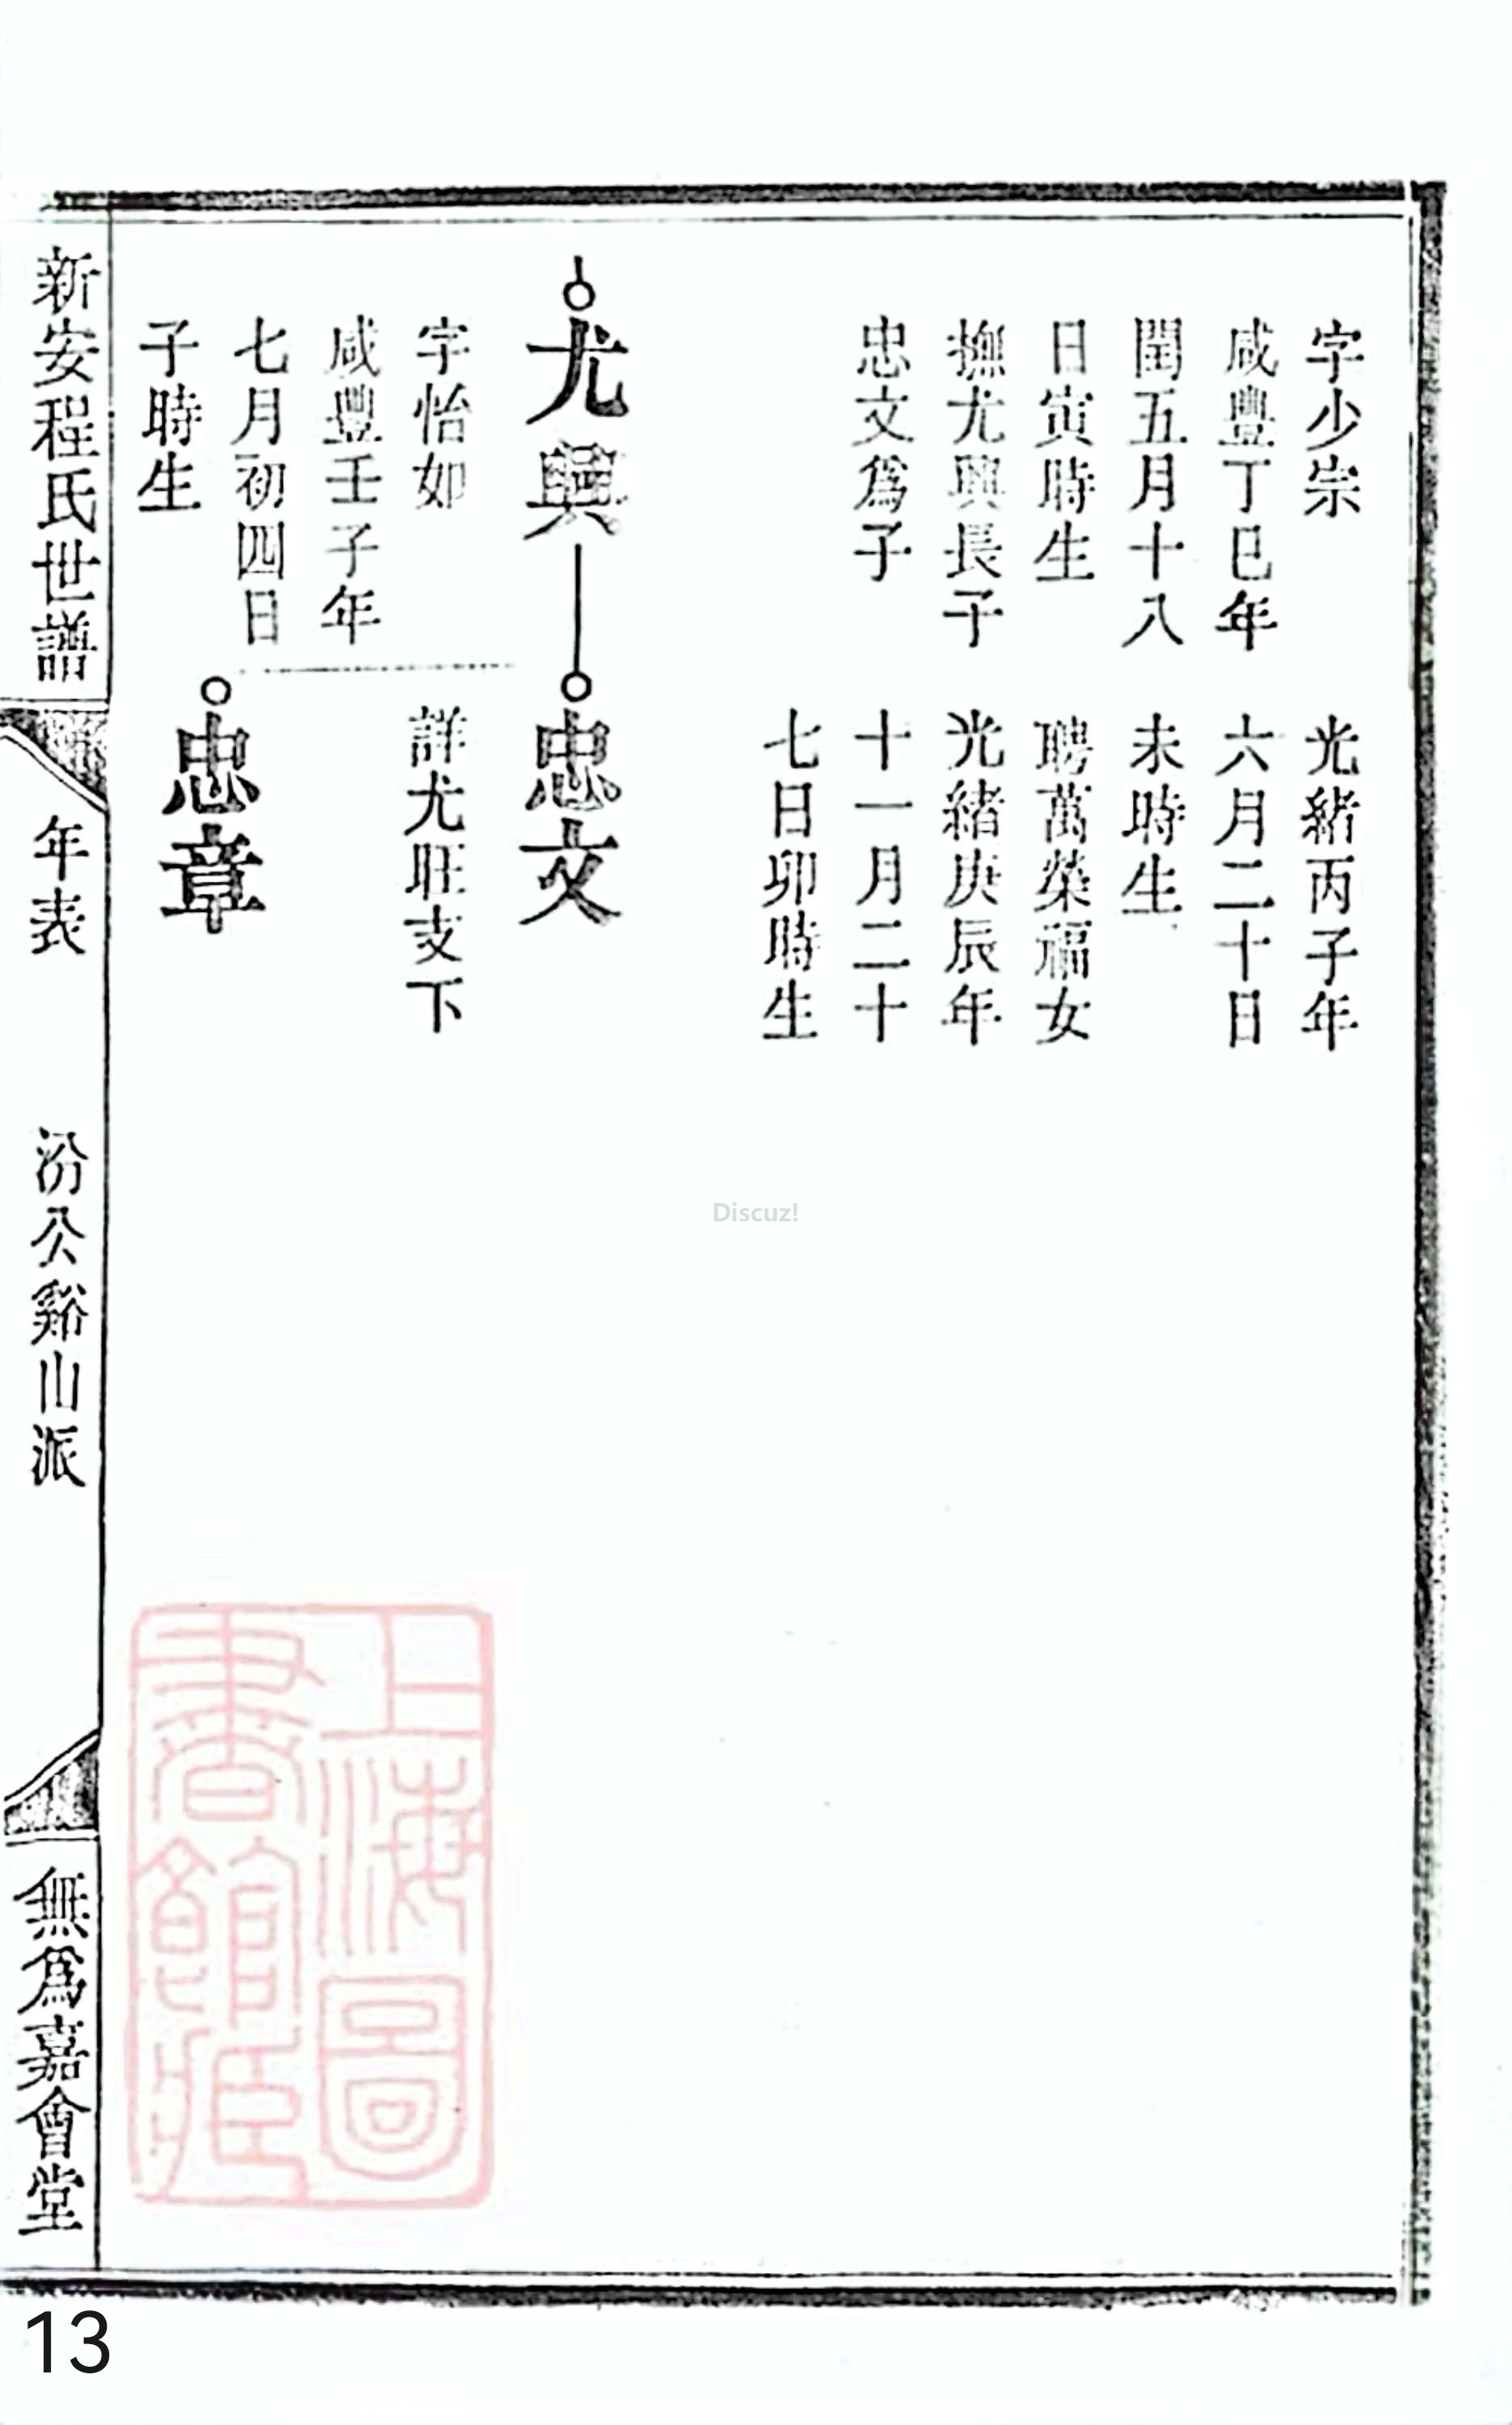 字少宗
咸豐丁巳年
閏五月十八
日寅時生
撫尤興長子
忠文爲子
光緒丙子年
六月二十日
未時生
聘萬榮福女
光緒庚辰年
十一月二十
七日卯時生
尤興
字怡如
咸豐壬子年
七月初四日
子時生
忠文
詳尤旺支下
忠章
新安程氏世譜
年表
汾公谿山派
無爲嘉會堂
上海圖
書館藏
Discuz!
13